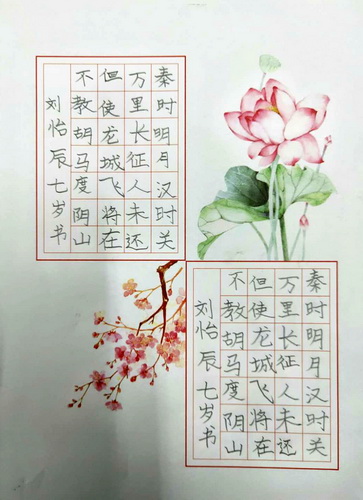 秦时明月汉时关
万里长征人未还
但使龙城飞将在
不教胡马度阴山
刘怡辰七岁书
秦时明月汉时关
万里长征人未还
但使龙城飞将在
不教胡马度阴山
刘怡辰七岁书